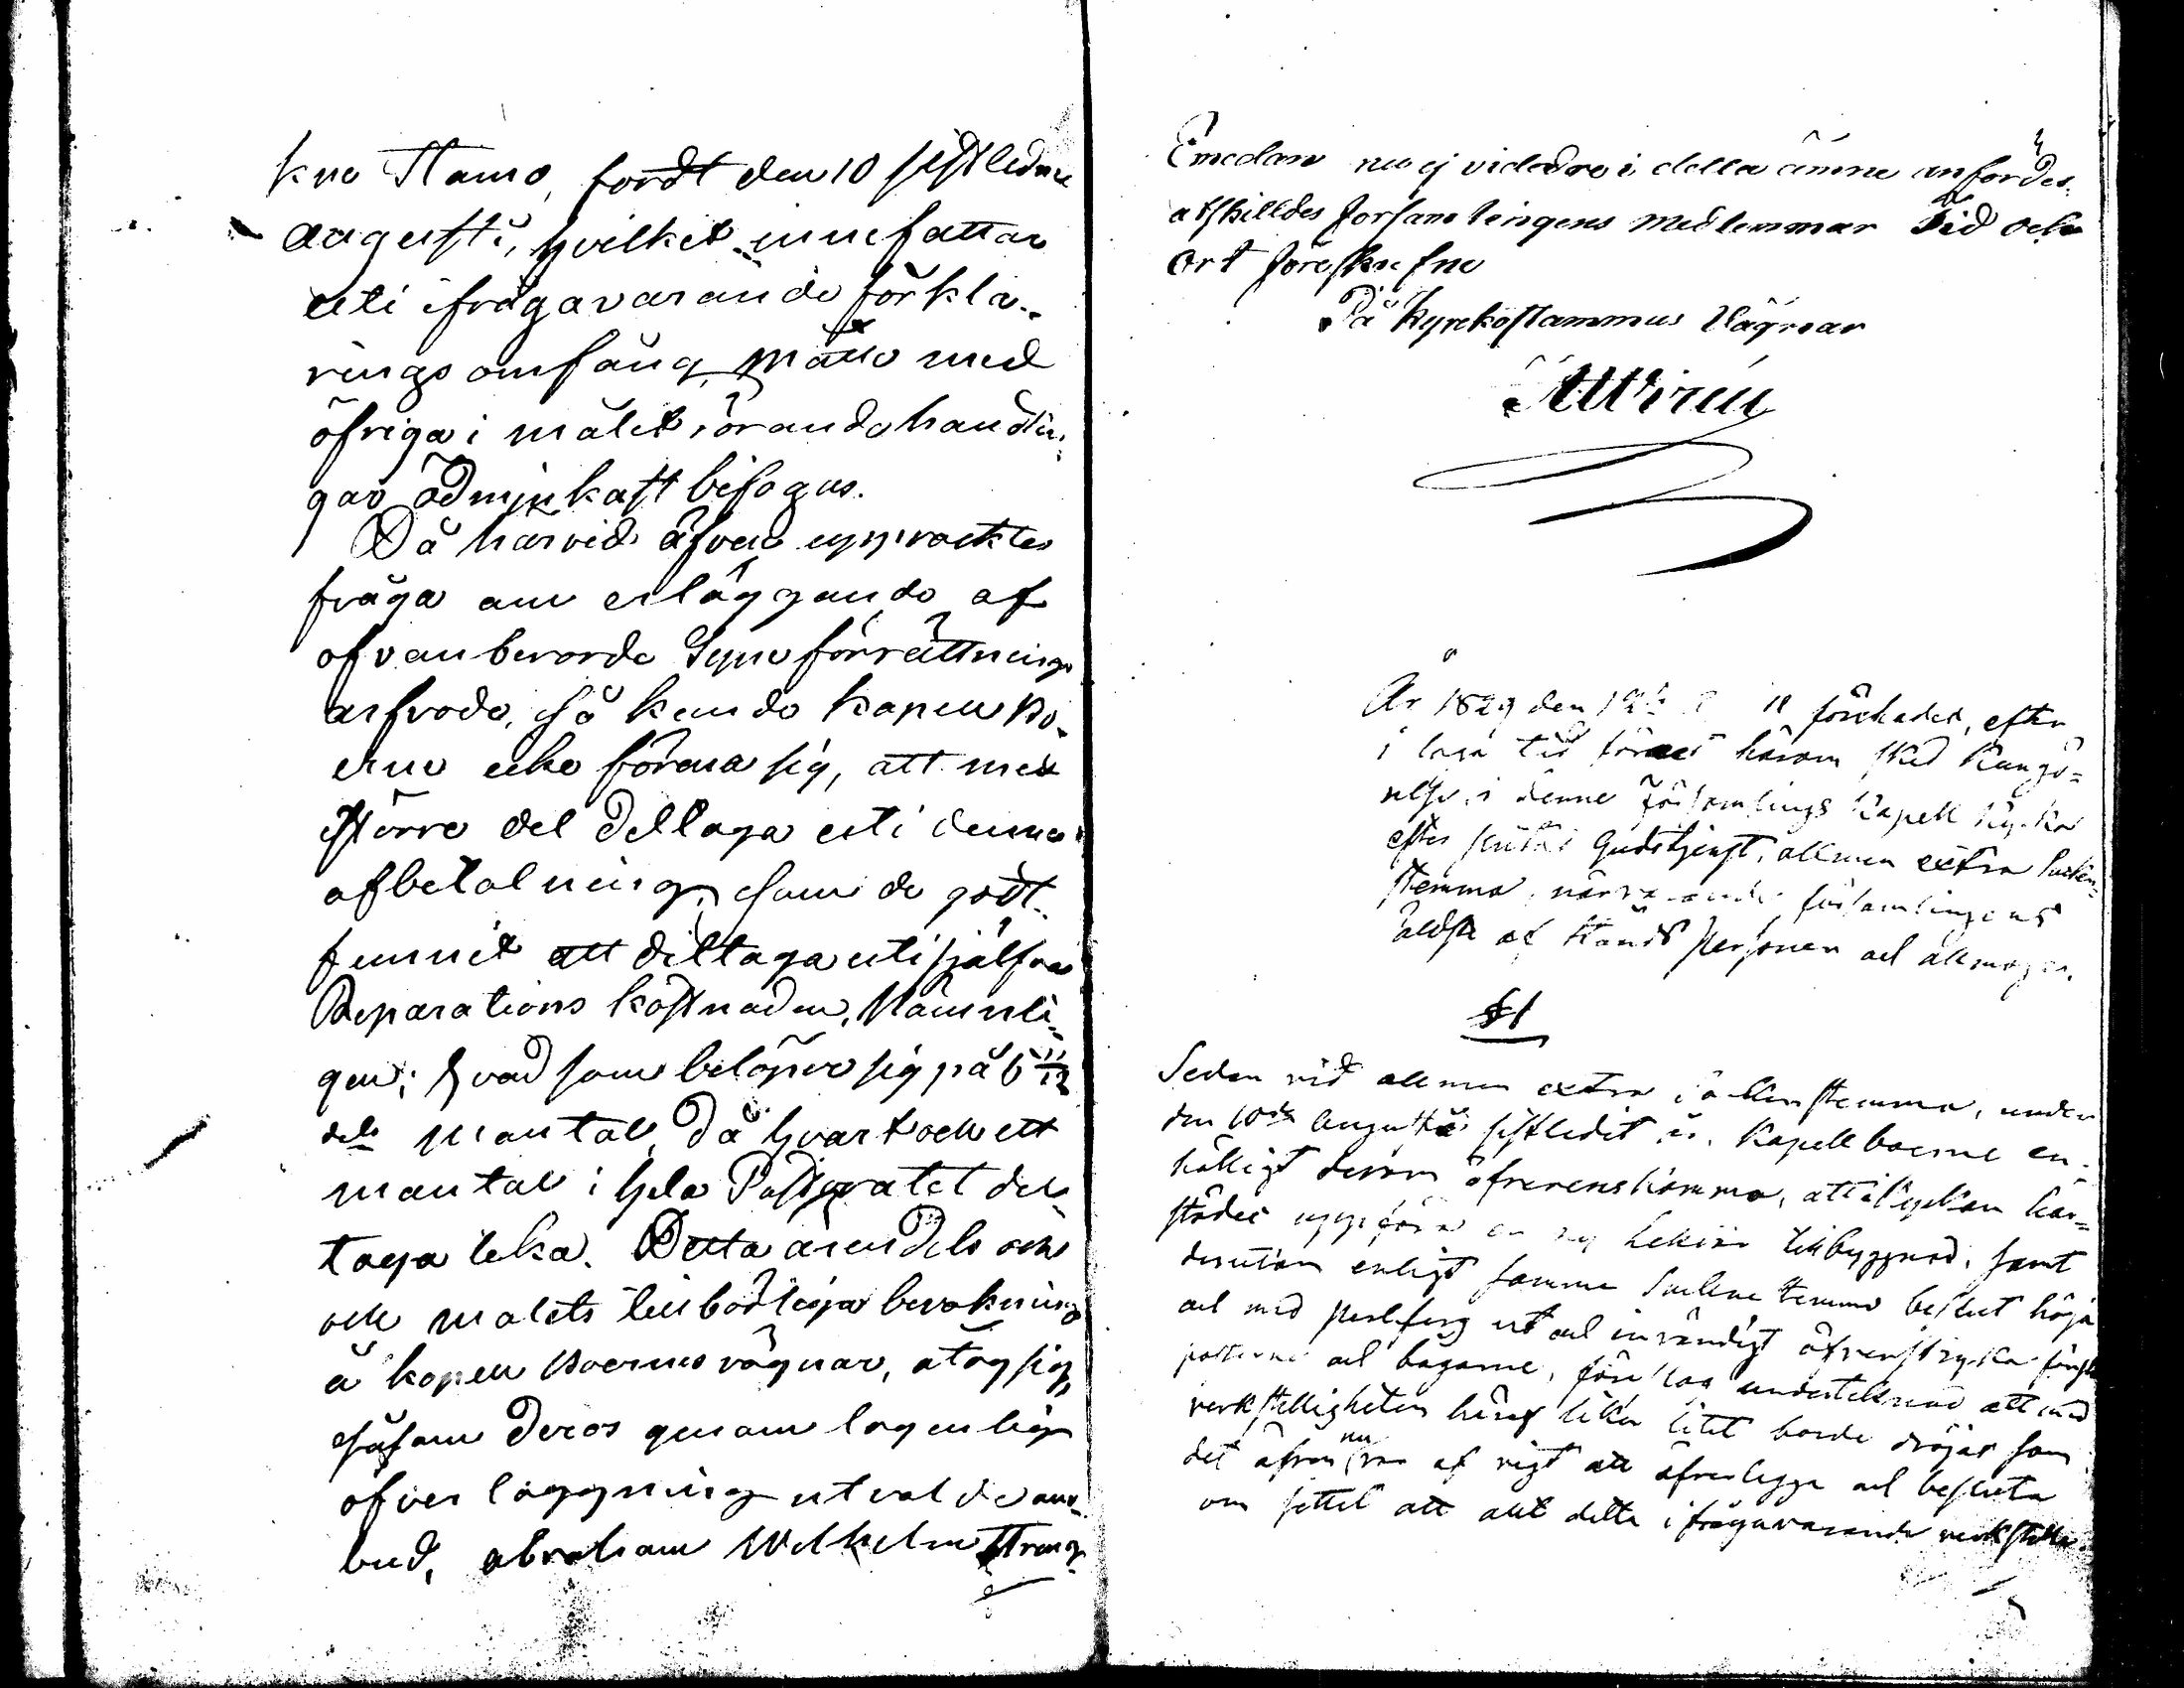 kno Stamo, fördt den 10 sistledne
Augusti, hvilket innefattar
uti ifrågavarande förkla-
rings omfång, måtte med
öfrige i målet rörande handlin-
gar ödmjukast bifogas.
Då härvid äfven uppväcktes
fråga om erläggande af
ofvanberörde Syneförrättnings
arfvode, så kunde kapellbo-
erne icke förena sig, att med
större del deltaga uti denna
afbetalning, som de godt-
funnit att deltaga uti sjelfva
Reparations kostnaden, Nämnli-
gen; hvad som belöper sig på 6 11/12
dels mantal, då hvart och ett
mantal i hela Pastoratet del-
taga lika. Detta ärendets och
och målets tillbörliga bevakning
å kapellboernes vägnar, åtog sig,
såsom deras genom lagenlig
öfverläggning utvalde om-
bud, Abraham Wilhelm Ström-
Emedan nu ej vidare i detta ämne anfördes,
åtskilldes församlingens medlemmar Tid och
Ort föreskrefne
På Kyrkostämmans Vägnar
A Wirén
År 1829 den förehades, efter
i laga tid förut härom sked kungö-
relse, i denne Församlings Kapell Kyrka
efter slutad Gudstjenst, allmen extra Socken-
stemma, närvarande församlingens
äldste af Stånds Personer och allmoge.
§ 1
Sedan vid allmen extra Sockenstemma, under
den 10de Augusti sistledit år, Kapellboerne en-
hälligt derom öfverenskommo, att i kyrkan här-
städes uppföra en ny Lektare tillbyggnad, samt
desutom enligt samma Sockne stemmo beslut höja
och med perlferg ut och invändigt öfverstryka fönster
posterne och bågarne, föreslog undertecknad att med
verkställigheten häraf lika litet borde dröjas som
det äfven nu var af vigt att öfverlägga och besluta
om settet att allt detta ifrågavarande verkställa.